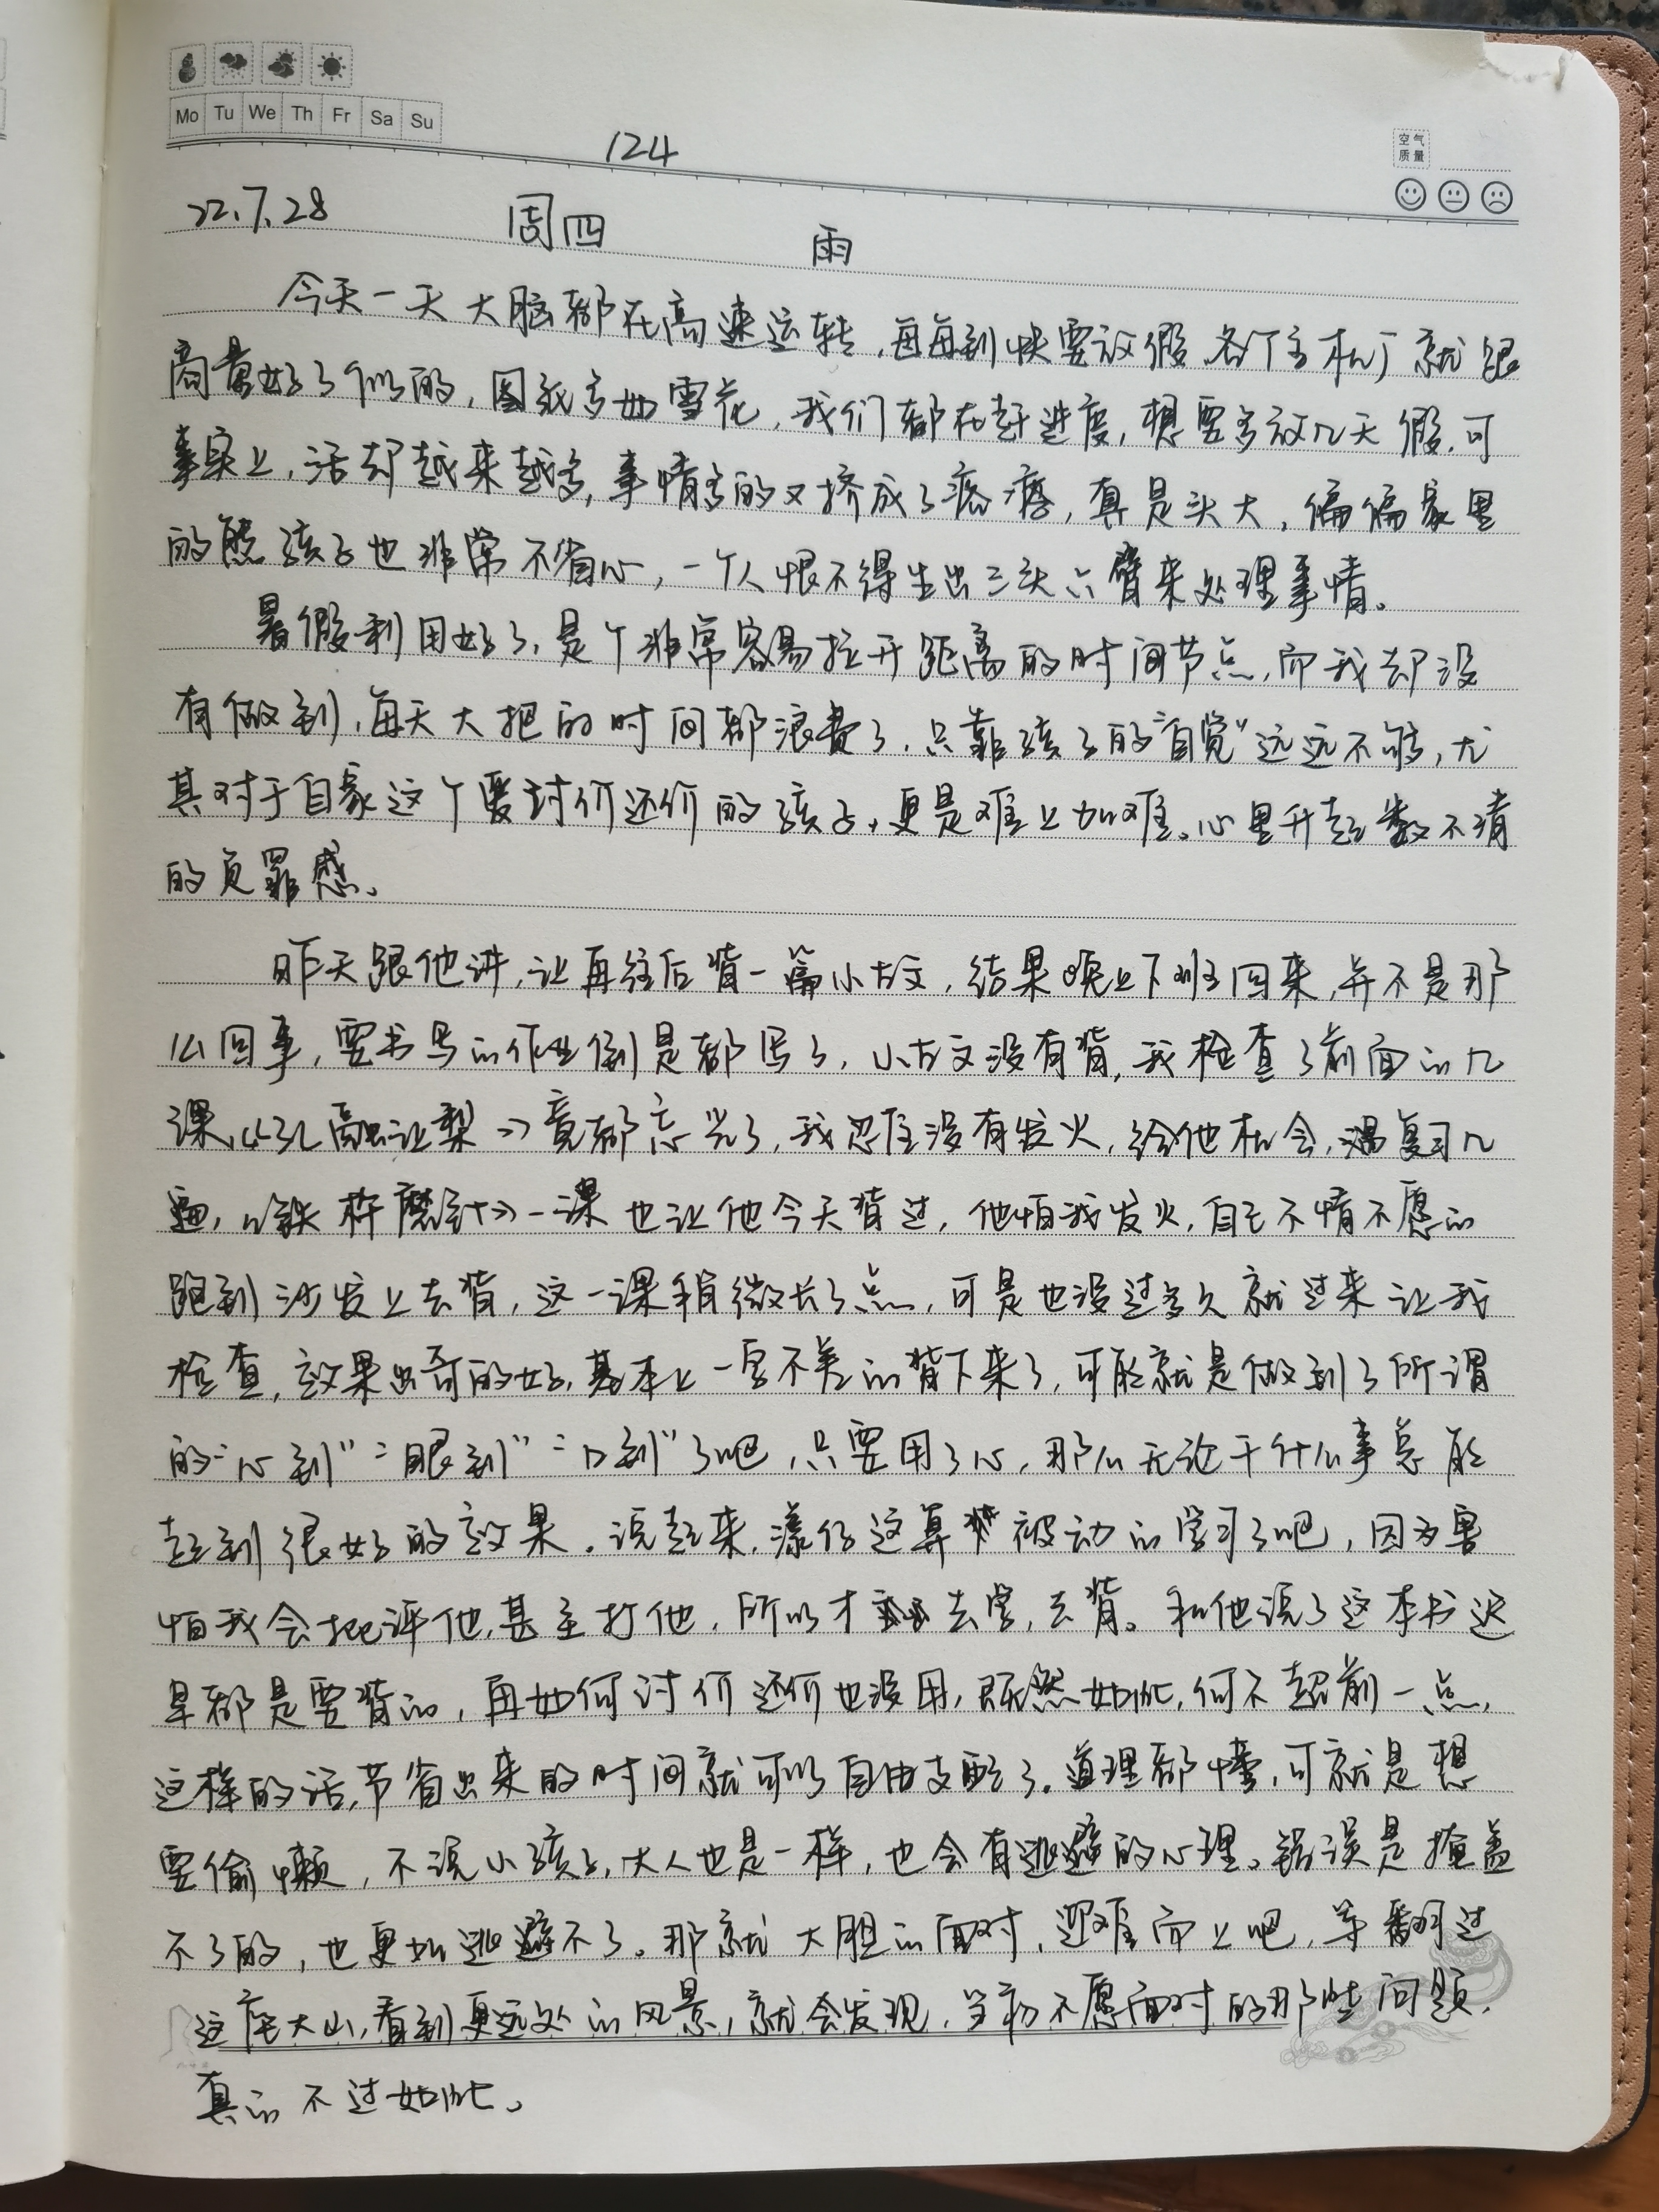 Mo Tu We Th Fr Sa Su
124
空气
质量
22.7.28 周四 雨
今天一天大脑都在高速运转,每每到快要放假各个主机厂就跟
商量好了似的,图纸多如雪花,我们都在赶进度,想要多放几天假,可
事实上,活却越来越多,事情多的又挤成了疙瘩,真是头大,偏偏家里
的熊孩子也非常不省心,一个人恨不得生出三头六臂来处理事情。
暑假利用好了,是个非常容易拉开距离的时间节点,而我却没
有做到,每天大把的时间都浪费了,只靠孩子的“自觉”远远不够,尤
其对于自家这个爱讨价还价的孩子,更是难上加难。心里升起数不清
的负罪感。
昨天跟他讲,让再往后背一篇小古文,结果晚上下班回来,并不是那
么回事,要书写的作业倒是都写了,小古文没有背,我检查了前面的几
课,《孔融让梨》竟都忘光了,我忍住没有发火,给他机会,温复习几
遍,《铁杵磨针》一课也让他今天背过,他怕我发火,自己不情不愿的
跑到沙发上去背,这一课稍微长了点,可是也没过多久就过来让我
检查,效果出奇的好,基本上一字不差的背下来了,可能就是做到了所谓
的“心到”“眼到”“口到”了吧,只要用了心,那么无论干什么事总能
起到很好的效果。说起来,漾仔这算被动的学习了吧,因为害
怕我会批评他,甚至打他,所以才去学,去背。和他说了这本书迟
早都是要背的,再如何讨价还价也没用,既然如此,何不超前一点,
这样的话,节省出来的时间就可以自由支配了。道理都懂,可就是想
要偷懒,不说小孩子,大人也是一样,也会有逃避的心理。错误是掩盖
不了的,也更加逃避不了。那就大胆的面对,迎难而上吧,等翻过
这座大山,看到更远处的风景,就会发现,当初不愿面对的那些问题,
真的不过如此。